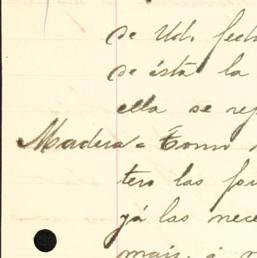 de Ud. fech
de ésta la
ella se re
Madera = Como
tero las fo
já las nece
mais, ó